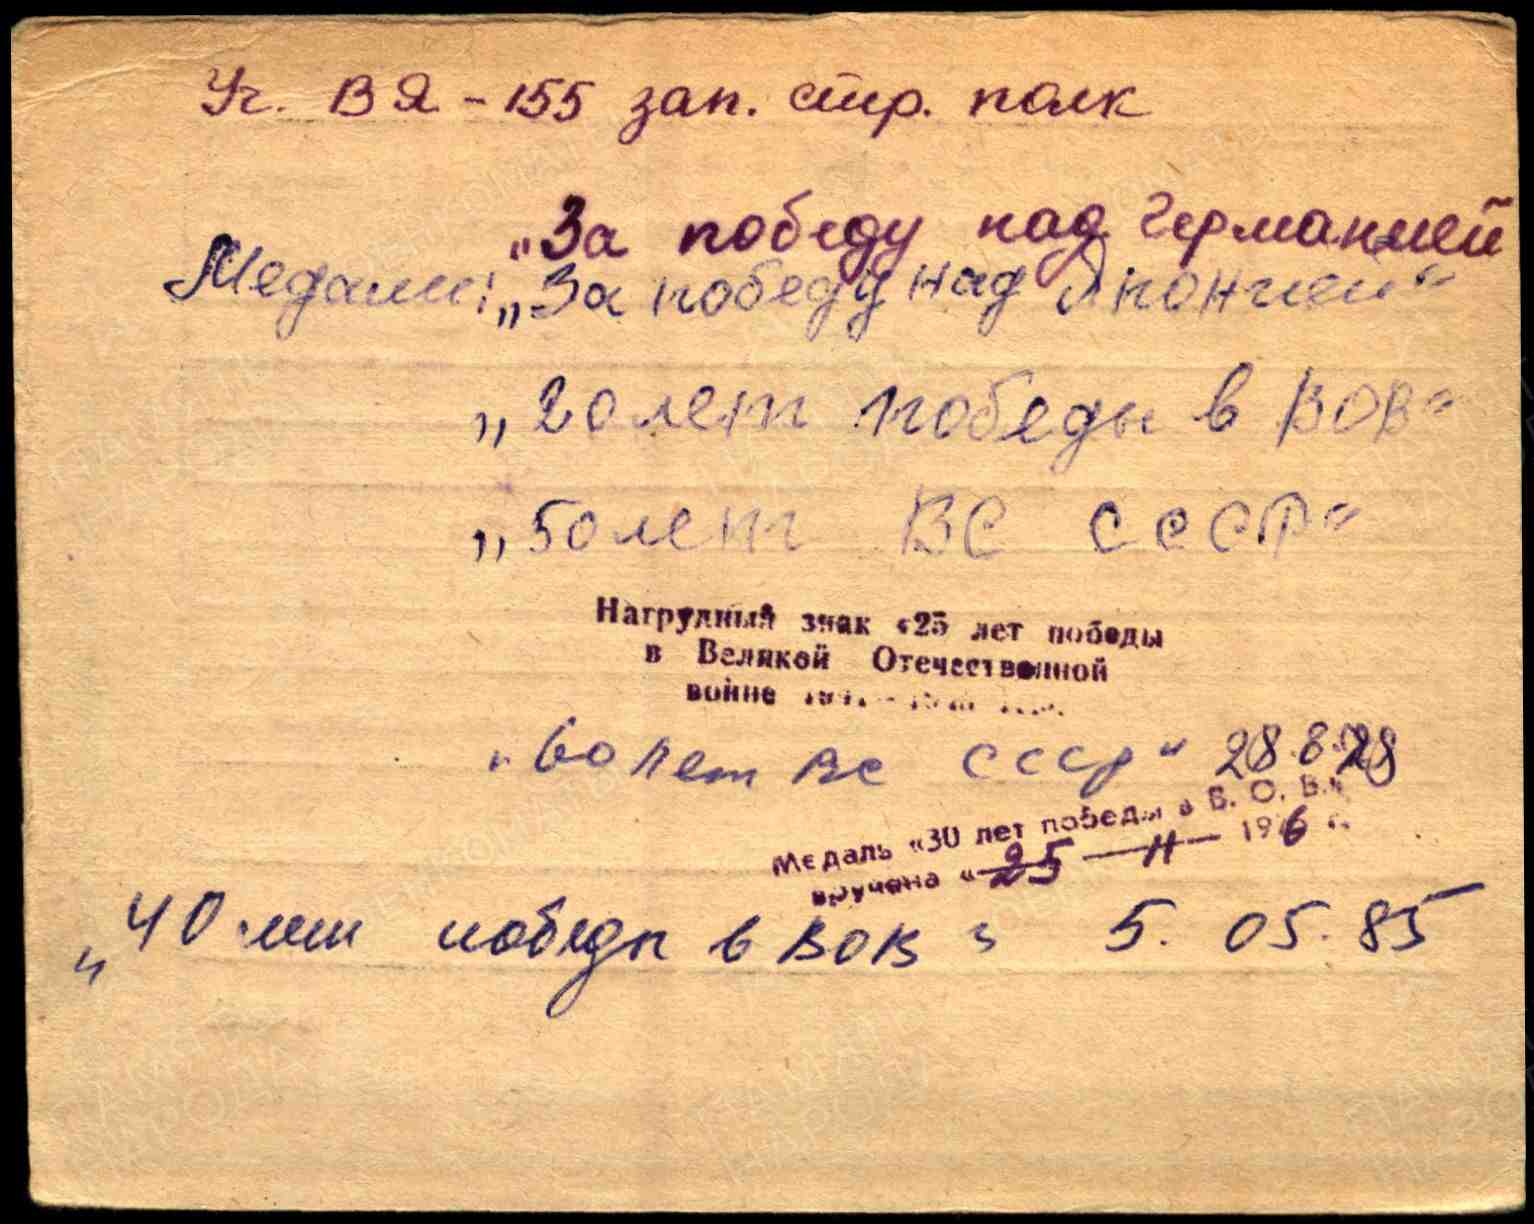 Уч. ВЯ - 155 зап. стр. полк
„За победу над Германией
Медали: „За победу над Японией“
„20 лет победы в ВОВ“
„50 лет ВС СССР“
Нагрудный знак «25 лет победы
в Великой Отечественной
войне
„60 лет ВС СССР“ 28.8.78
Медаль «30 лет победы в В. О. В.»
вручена «25 — II — 1976 г.
„40 лет победы в ВОВ“ 5. 05. 85